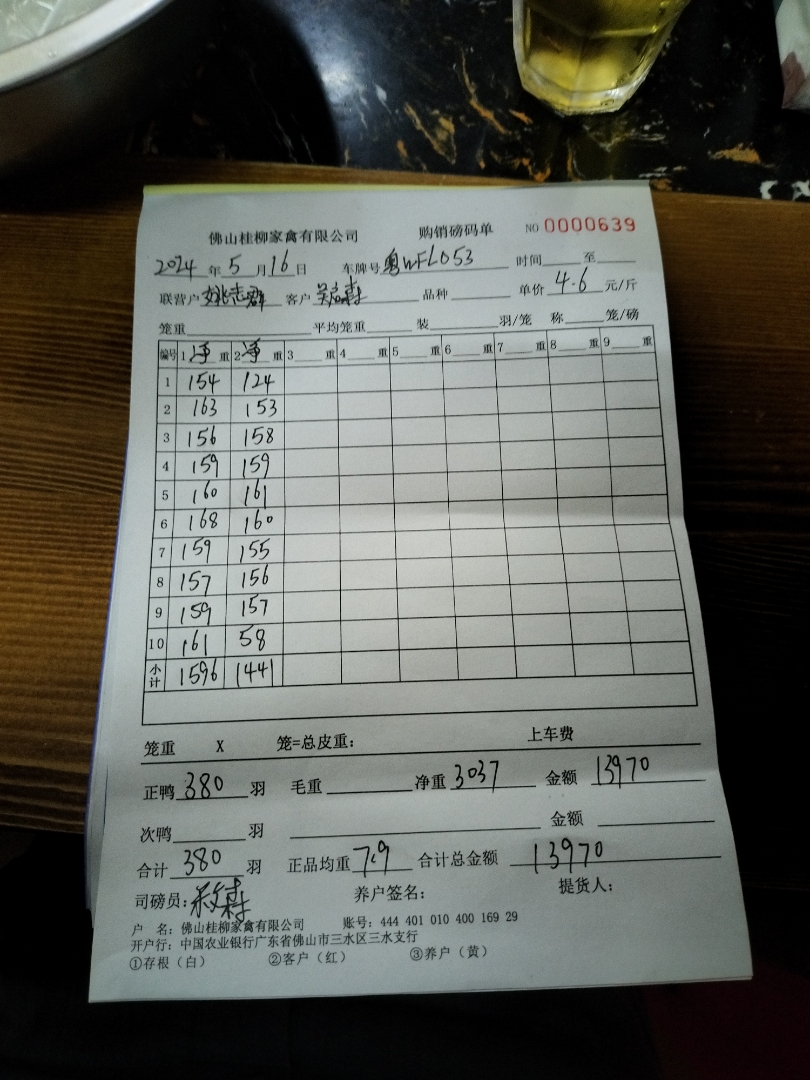 佛山桂柳家禽有限公司 购销磅码单 NO 0000639
2024年5月16日 车牌号粤WFL053 时间 至
联营户姚志群 客户 品种 单价4.6元/斤
笼重 平均笼重 装 羽/笼 称 笼/磅
编号 1净重 2净重 3重 4重 5重 6重 7重 8重 9重
1 154 124
2 163 153
3 156 158
4 159 159
5 160 161
6 168 160
7 159 155
8 157 156
9 159 157
10 161 58
小计 1596 1441
笼重 X 笼=总皮重: 上车费
正鸭380羽 毛重 净重3037 金额13970
次鸭 羽 金额
合计380羽 正品均重7.9 合计总金额13970
司磅员: 养户签名: 提货人:
户 名: 佛山桂柳家禽有限公司 账号: 444 401 010 400 169 29
开户行: 中国农业银行广东省佛山市三水区三水支行
①存根（白） ②客户（红） ③养户（黄）